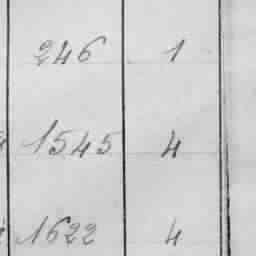 246 1
1545 4
1622 4